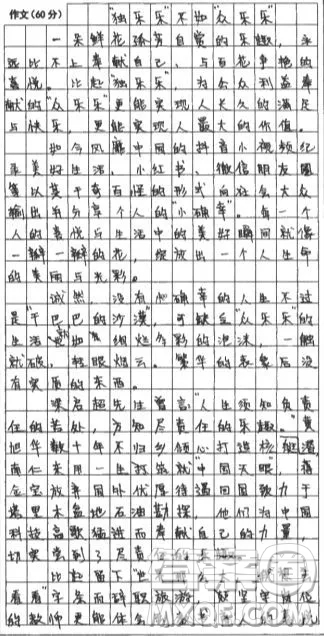 作文(60分)
"独乐乐"不如"众乐乐"
一朵鲜花孤芳自赏的乐趣,永
远比不上奉献自己、与百花争艳的
喜悦。比起"独乐乐",为公众利益奉
献的"众乐乐"更能实现人长久的满足
与快乐,更能实现人最大的价值。
如今风靡中国的抖音小视频纪
录美好生活,小红书、微信朋友圈
等以莫千奇百怪的形式向社会大众
输出与分享个人的"小确幸"。每一个
人的喜悦与生活中的美好瞬间就像
一瓣一瓣的花,绽放出一个人生命
的美丽与光彩。
诚然,没有小确幸的人生不过
是"干巴巴的沙漠",可缺乏"众乐乐的
生活就如绚烂多彩的泡沫,一触
就破,转眼烟云。繁华的表象后没
有实质的东西。
梁启超先生曾言:"人生须知负责
任的苦处,方知尽责任的乐趣。"黄
旭华数十年不归乡倾心打造核潜
南仁东用一生打造就"中国天眼",
金宝放弃国外优厚待遇回国致力于
塔里木盆地石油勘探,他们为中国
科技高歌猛进而奉献自己的力量,
切实尝到了尽责任的
比起留下"
看看"字条而辞职旅游,
的教师更能体会